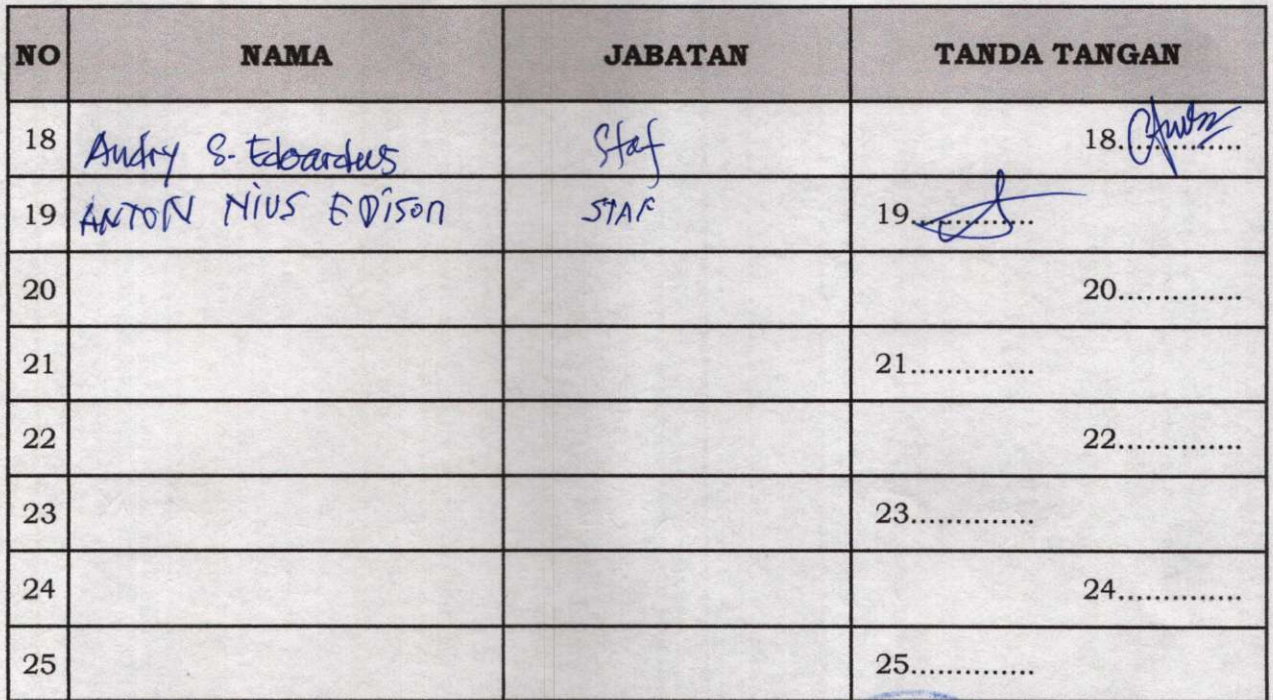 NO NAMA JABATAN TANDA TANGAN
18 Audry S. Edoardus Staf 18..............
19 ANTON NIUS EDison STAF 19..............
20 20..............
21 21..............
22 22..............
23 23..............
24 24..............
25 25..............